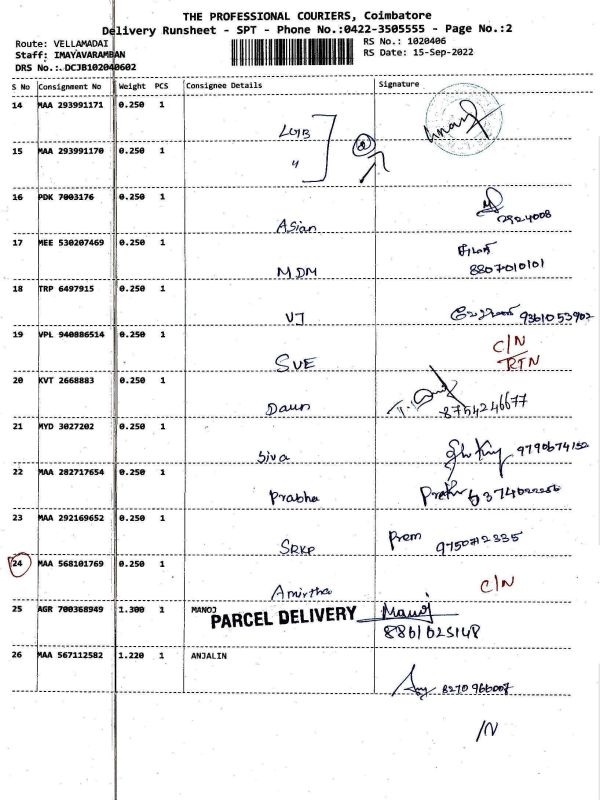 THE PROFESSIONAL COURIERS, Coimbatore
Delivery Runsheet - SPT - Phone No.:0422-3505555 - Page No.:2
Route: VELLAMADAI
Staff: IMAYAVARAMBAN
DRS No.:.DCJB102040602
RS No.: 1020406
RS Date: 15-Sep-2022
S No Consignment No Weight PCS Consignee Details Signature
14 MAA 293991171 0.250 1
15 MAA 293991170 0.250 1
16 PDK 7003176 0.250 1 Asian
17 MEE 530207469 0.250 1 MDM 8807010101
18 TRP 6497915 0.250 1 VJ
19 VPL 940886514 0.250 1 SVE C/N RTN
20 KVT 2668883 0.250 1 8754246677
21 MYD 3027202 0.250 1 Siva
22 MAA 282717654 0.250 1 Prabha
23 MAA 292169652 0.250 1 SRKP Prem
24 MAA 568101769 0.250 1 Amirtha C/N
25 AGR 700368949 1.300 1 MANOJ PARCEL DELIVERY Manoj
26 MAA 567112582 1.220 1 ANJALIN
/N